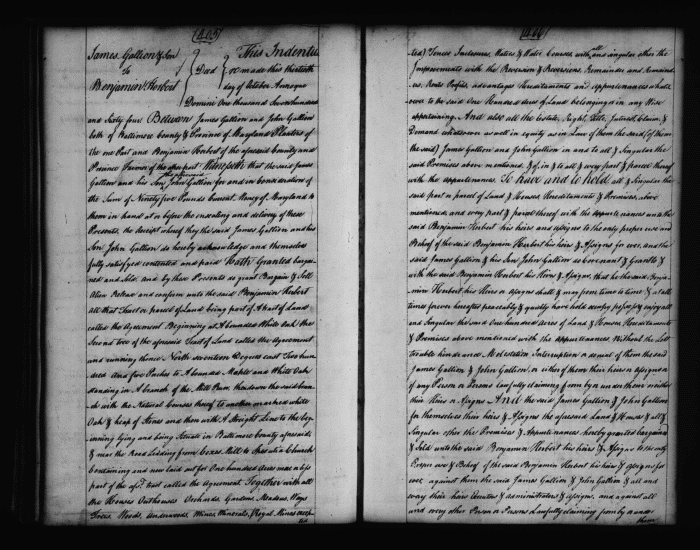 (405)
James Gallion & Son
to
Benjamin Herbert
Deed
This Indentu
re made this thirteenth
day of October Annoque
Domini One thousand Seven hundred
and Sixty four Between James Gallion and John Gallion
both of Baltimore County & Province of Maryland Planters of
the one Part and Benjamin Herbert of the aforesaid County and
Province Farmer of the other part Witnesseth that the said James
Gallion and his Son John Gallion for and in consideration of
the Sum of Ninety five Pounds Current Money of Maryland to
them in hand at or before the ensealing and delivery of these
Presents, the Receipt whereof they the said James Gallion and his
Son John Gallion do hereby acknowledge and themselves
fully satisfyed contented and paid Hath Granted bargai
ned and Sold and by these Presents do grant Bargain & Sell
Alien Release and confirm unto the said Benjamin Herbert
all that Tract or parcel of Land being part of A tract of Land
called the Agreement Beginning at A bounded White Oak the
Second tree of the aforesaid Tract of Land called the Agreement
and running thence North seventeen Degrees East Two hun
dred and five Perches to A bounded Maple and White Oak
standing in A branch of the Mill Run, thence down the said bran
ch with the Natural Courses thereof to another marked white
Oak & heap of Stones and then with A Straight Line to the beg
inning lying and being Situate in Baltimore County aforesaid
& near the Road Leading from Coxes Mill to Spesutia Church
Containing and now laid out for One hundred Acres more or less
part of the afs.d tract called the Agreement Together with all
the Houses Outhouses Orchards, Gardens, Meadows, Ways
Trees, Woods, Underwoods, Mines, Minerals, (Royal Mines excep
ted
(406)
ted) Fences Inclosures, Waters & Water Courses, with all and singular other the
Improvements with the Reversion & Reversions Remainder and Remaind
ers, Rents Profits, advantages Hereditaments and appurtenances whats
ever to the said One Hundred Acres of Land belonging in any Wise
appertaining And also all the Estate, Right, Title, Interest, Claim, &
Demand whatsoever as well in equity as in Law of them the said (of them
the said) James Gallion and John Gallion in and to all & Singular the
said Premises above mentioned, & of, in & to all & every part & parcel thereof
with the appurtenances To have and to hold all & Singular the
said part or parcel of Land & Houses Hereditaments & Premises, above
mentioned, and every part & parcel thereof with the Appurtenances unto the
said Benjamin Herbert his heirs and assigns to the only proper use and
Behoof of the said Benjamin Herbert his heirs & Assigns for ever, and the
said James Gallion & his Son John Gallion do Covenant & Grant to &
with the said Benjamin Herbert his Heirs & Assigns, that he the said Benja
min Herbert his Heirs or assigns shall & may from time to time & at all
times forever hereafter peaceably & quietly have hold occupy possess & enjoy all
and Singular the said One hundred Acres of Land & Houses Hereditaments
& Premises above mentioned with the appurtenances Without the Lett
trouble hindrance Molestation Interruption or denial of them the said
James Gallion & John Gallion, or either of them their heirs or assigns or
of any Person or Persons Lawfully claiming from by or under them or either
their Heirs or Assigns And the said James Gallion & John Gallion
for themselves their heirs & Assigns the aforesaid Land & Houses & all &
Singular other the Premises & Appurtenances hereby granted bargained
& Sold unto the said Benjamin Herbert his heirs & Assigns to the only
Proper use & Behoof of the said Benjamin Herbert his heirs & Assigns for
ever, against them the said James Gallion & John Gallion & all and
every their heirs Executors & administrators & assigns, and against all
and every other Person or Persons Lawfully claiming from by or under
them